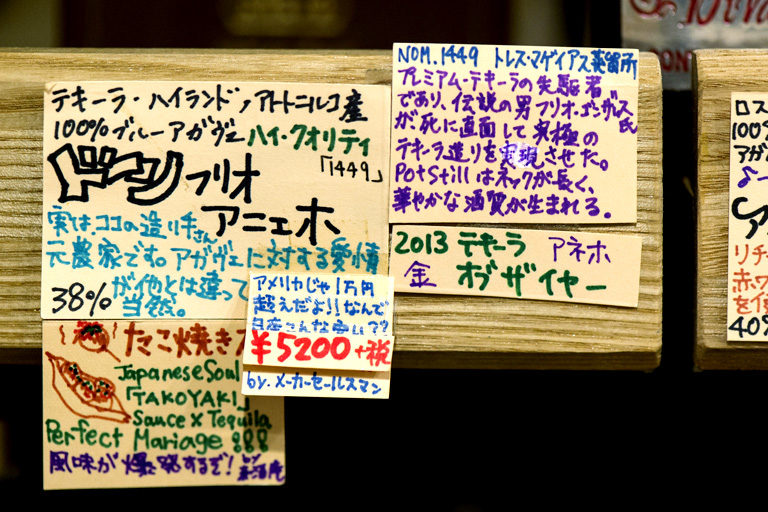 テキーラ・ハイランド,アトトニルコ産
100%ブルーアガヴェ ハイ・クオリティ
「1449」
ドン フリオ
アニェホ
実は、ココの造り手さん
元農家です。アガヴェに対する愛情
が他とは違って
当然。
38%
NOM.1449 トレス・マゲイアス蒸留所
プレミアム・テキーラの先駆者
であり、伝説の男フリオ・ゴンザレス氏
が、死に直面して究極の
テキーラ造りを実現させた。
Pot Still はネックが長く、
華やかな酒質が生まれる。
2013 テキーラ アネホ
金 オブザイヤー
アメリカじゃ1万円
超えだよ!!なんで
日本さんな安い??
¥5200+税
by.メーカーセールスマン
たこ焼き
Japanese Soul
「TAKOYAKI」
Sauce x Tequila
Perfect Mariage
風味が爆発するぞ!
by
100%
アガ
リチ
赤ワ
40%